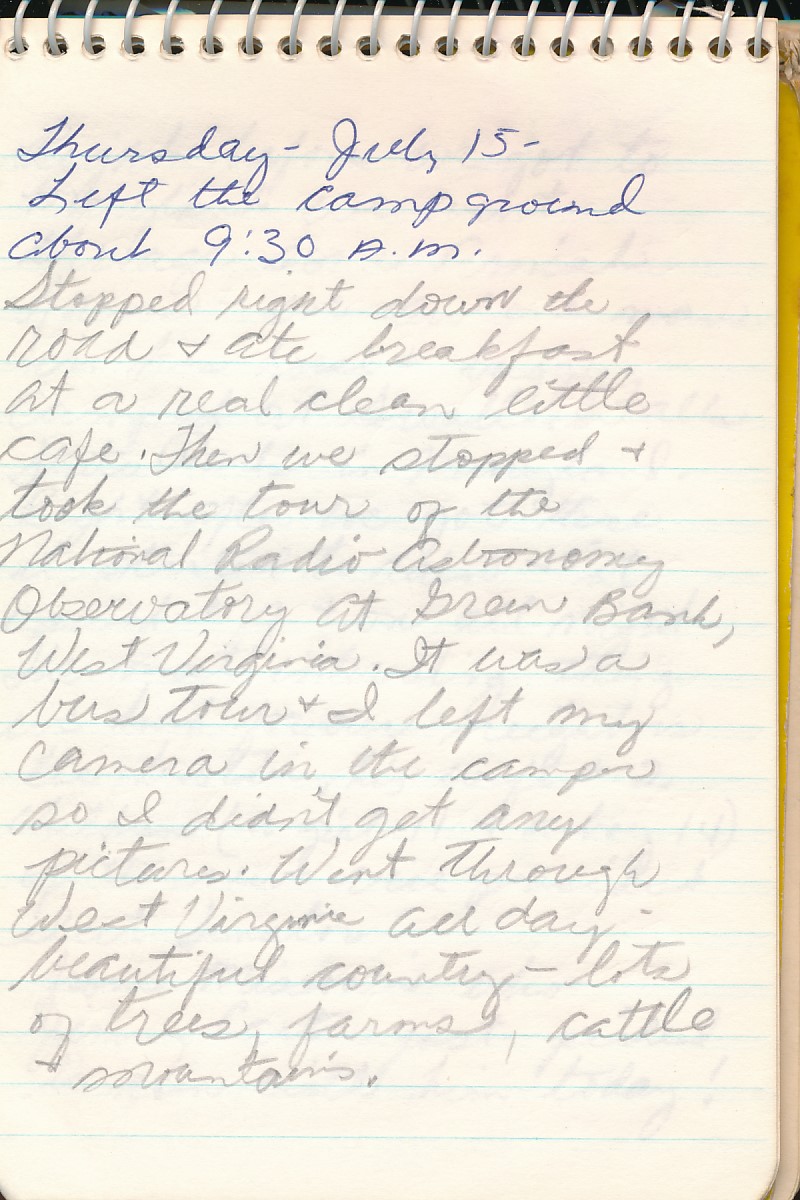 Thursday - July 15 -
Left the campground
about 9:30 A.M.
Stopped right down the
road & ate breakfast
at a real clean little
cafe. Then we stopped &
took the tour of the
National Radio Astronomy
Observatory at Green Bank,
West Virginia. It was a
bus tour & I left my
camera in the camper
so I didn't get any
pictures. Went through
West Virginia all day -
beautiful country - lots
of trees, farms, cattle
& mountains.